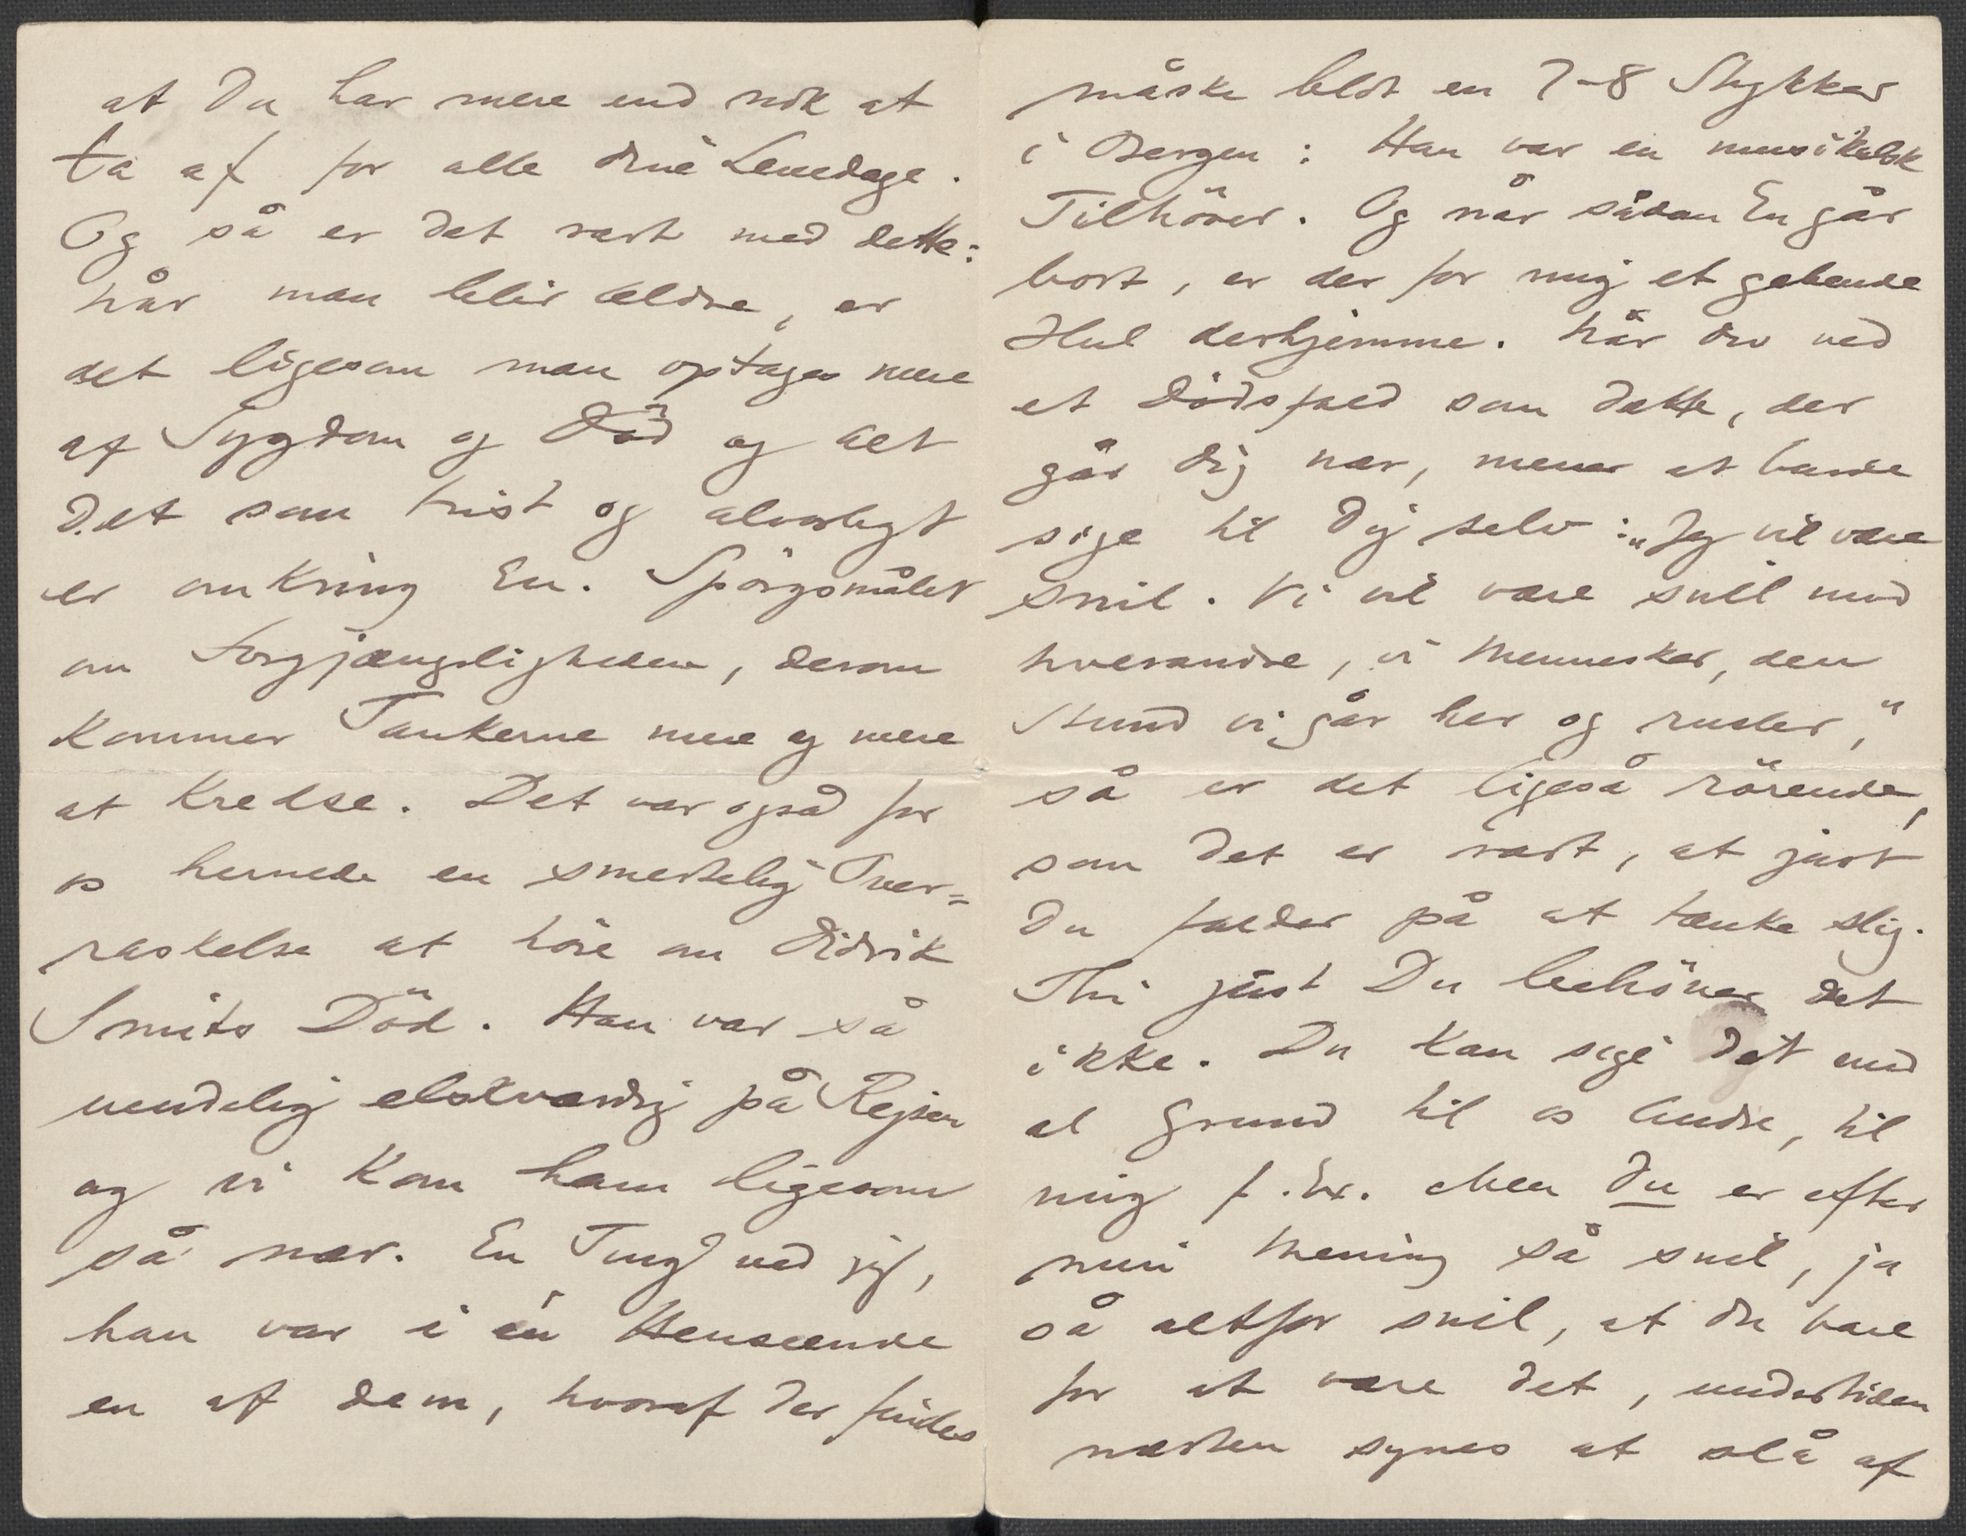 at Du har mere end nok at
ta af for alle dine Levedage.
Og så er det rart med dette:
når man blir ældre, er
det ligesom man optages mere
af Sygdom og Död og alt
Det som trist og alvorligt
er omkring En. Spörgsmålet
om Forgjængeligheden, derom
kommer Tankerne mere og mere
at kredse. Det var også for
os hernede en smertelig Over-
raskelse at höre om Didrik
Smits Död. Han var så
uendelig elskværdig på Rejsen
og vi kom ham ligesom
så nær. En Ting ved jeg,
han var i én Henseende
en af dem, hvoraf der findes
måske blot en 7-8 Stykker
i Bergen: Han var en musikalsk
Tilhörer. Og når sådan En går
bort, er der for mig et gabende
Hul derhjemme. Når Du ved
et Dödsfald som dette, der
går Dig nær, mener at burde
sige til Dig selv: „Jeg vil være
snil. Vi vil være snill mod
hverandre, vi Mennesker, den
Stund vi går her og rusler,"
så er det ligeså rörende,
som det er rart, at just
Du falder på at tænke slig.
Thi just Du behöver det
ikke. Du kan sige det med
al Grund til os Andre, til
mig f. Ex. Men Du er efter
min Mening så snil, ja
så altfor snil, at Du bare
for at være det, undertiden
næsten synes at slå af